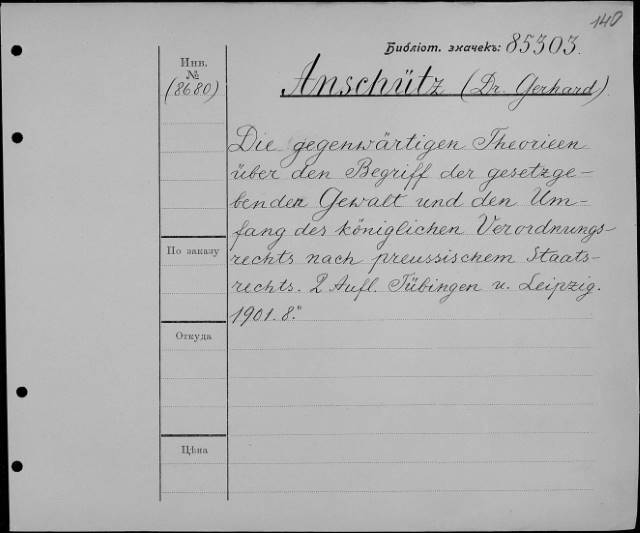 140
Библіот. значекъ: 85303.
Инв.
№
(8680)
Anschütz (Dr. Gerhard).
Die gegenwärtigen Theorieen
über den Begriff der gesetzge-
benden Gewalt und den Um-
fang des königlichen Verordnungs-
rechts nach preussischem Staats-
rechts. 2 Aufl. Tübingen u. Leipzig.
1901. 8.º
По заказу
Откуда
Цѣна